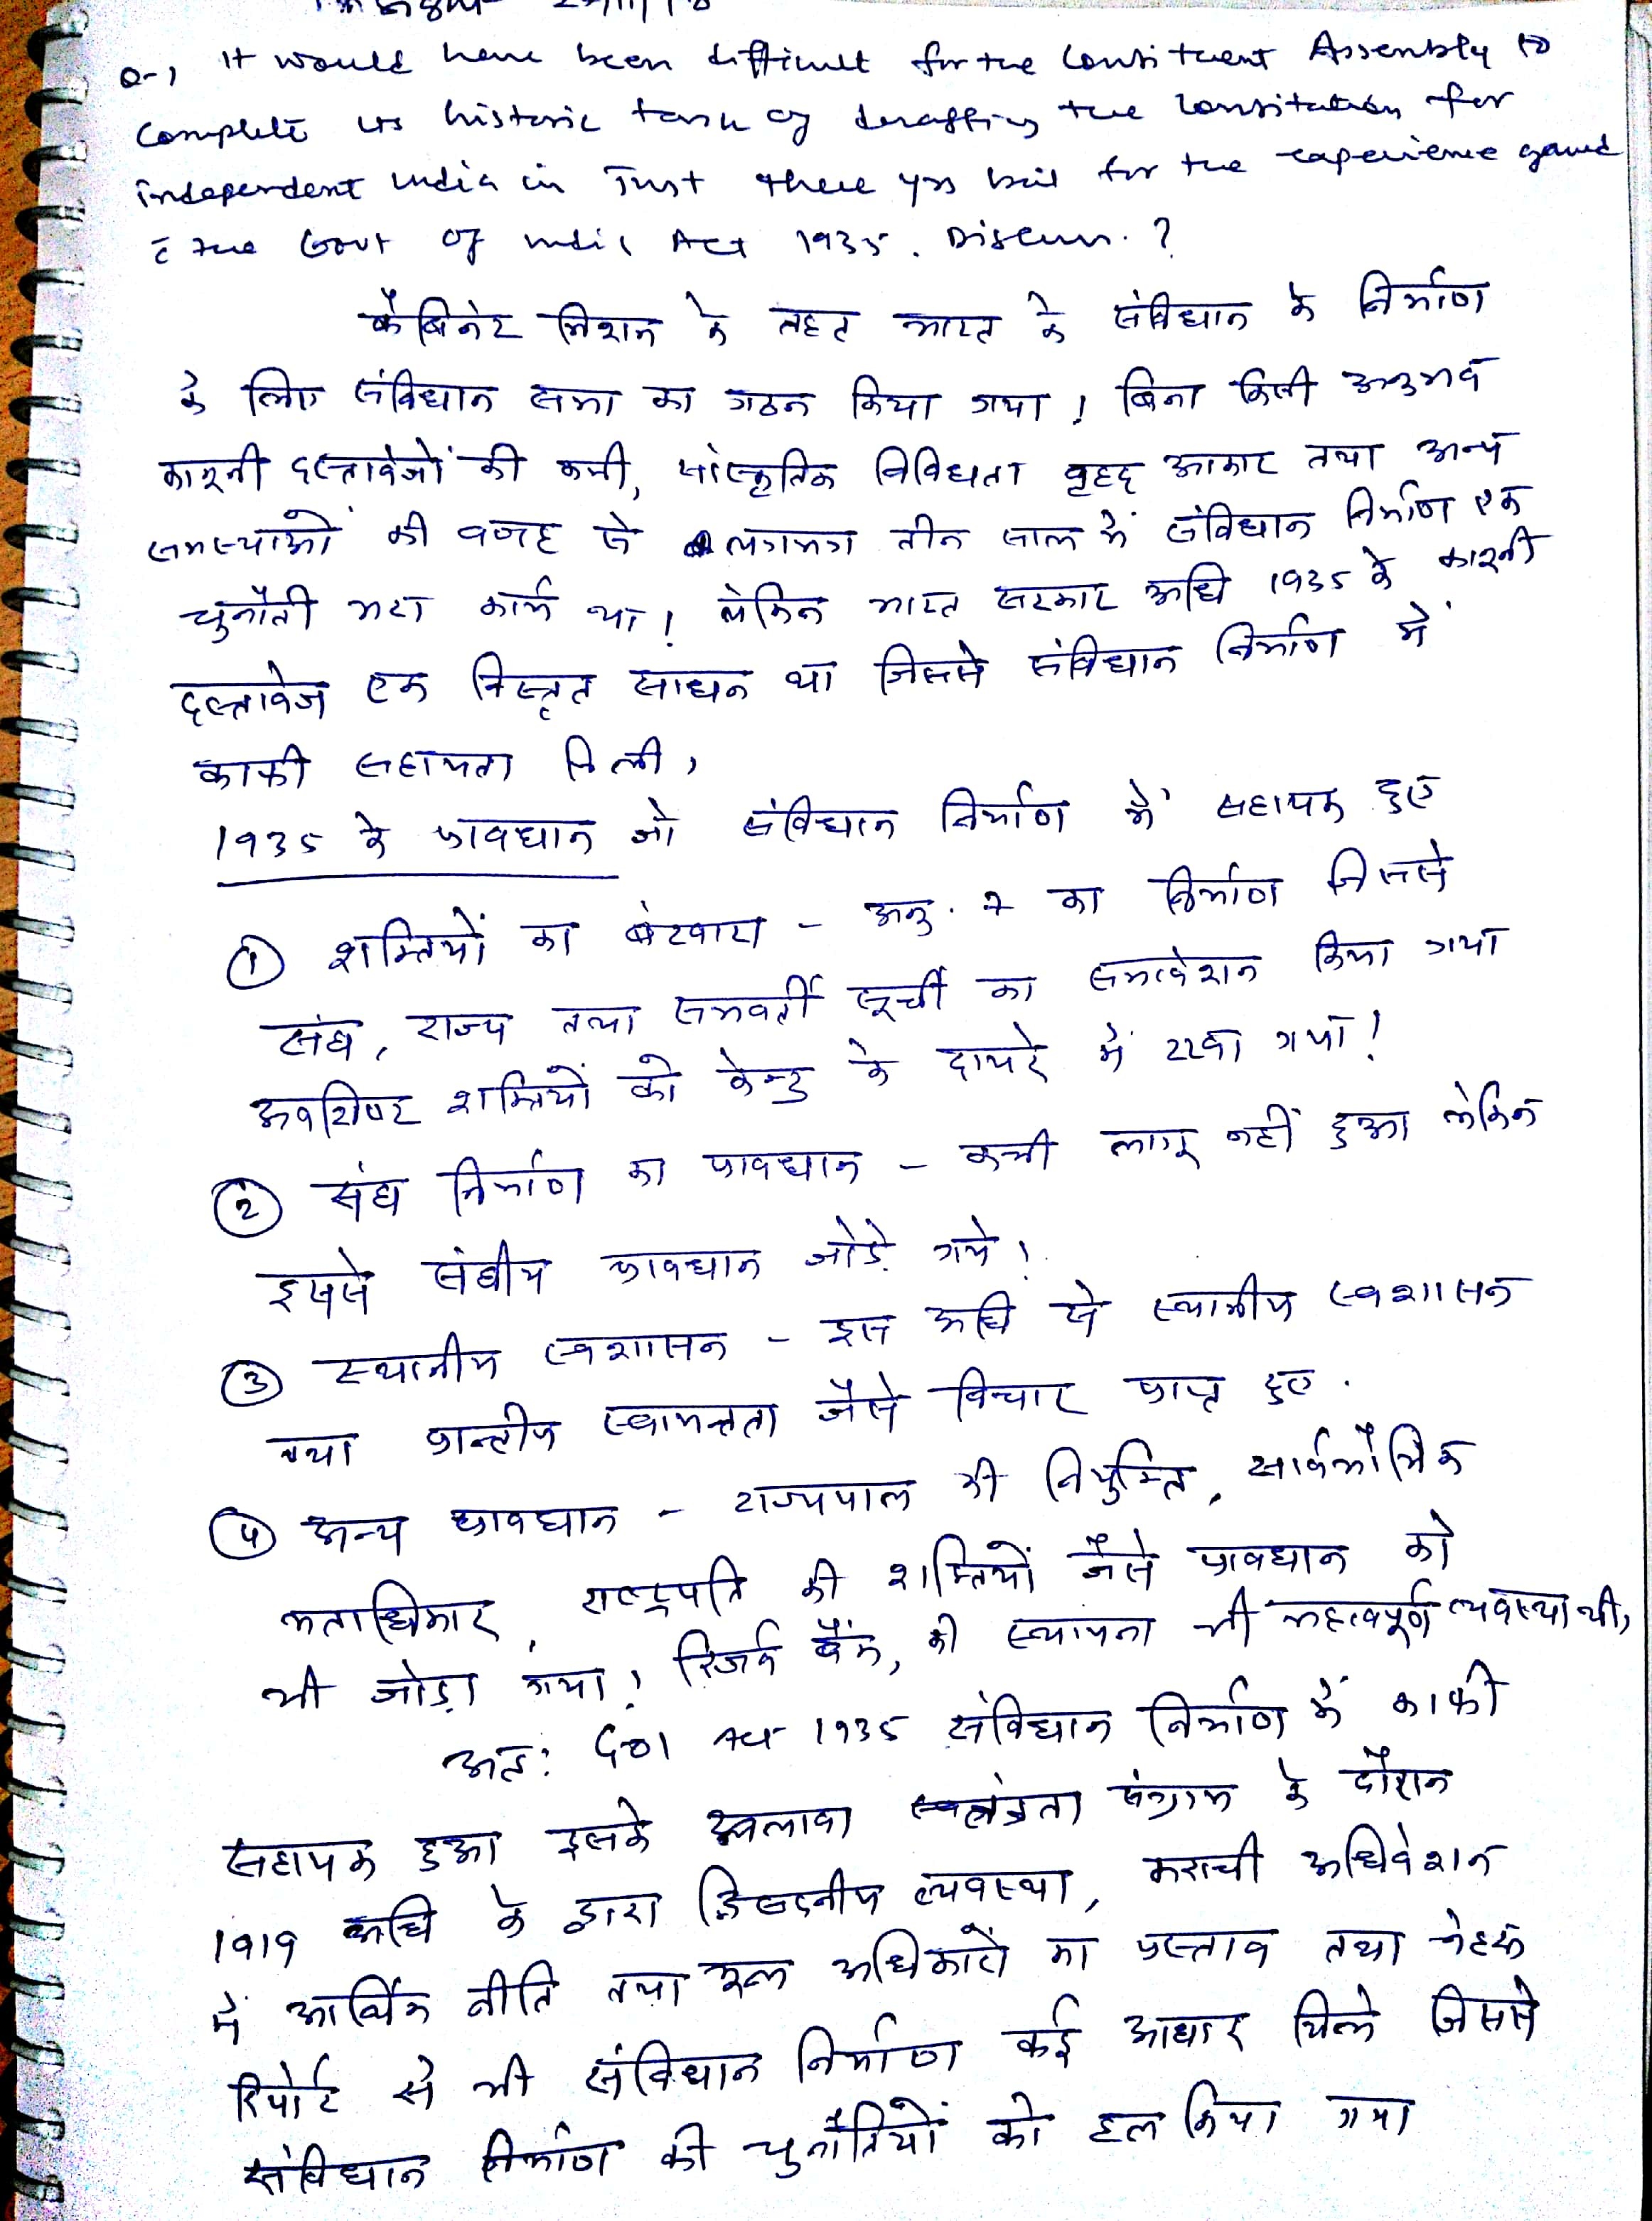 Q-1 It would have been difficult for the Constituent Assembly to
complete its historic task of drafting the Constitution for
independent India in Just three yrs but for the experience gained
c̄ the Govt of India Act 1935. Discuss. ?
कैबिनेट मिशन के तहत भारत के संविधान के निर्माण
के लिए संविधान सभा का गठन किया गया। बिना किसी अनुभव
कानूनी दस्तावेजों की कमी, सांस्कृतिक विविधता वृहद आकार तथा अन्य
समस्याओं की वजह से लगभग तीन साल में संविधान निर्माण एक
चुनौती भरा कार्य था। लेकिन भारत सरकार अधि 1935 के कानूनी
दस्तावेज एक विस्तृत साधन था जिससे संविधान निर्माण में
काफी सहायता मिली,
1935 के प्रावधान जो संविधान निर्माण में सहायक हुए
① शक्तियों का बंटवारा - अनु. 7 का निर्माण जिससे
संघ, राज्य तथा समवर्ती सूची का समावेशन किया गया
अवशिष्ट शक्तियों को केन्द्र के दायरे में रखा गया!
② संघ निर्माण का प्रावधान - कभी लागू नहीं हुआ लेकिन
इससे संघीय प्रावधान जोड़े गये।
③ स्थानीय स्वशासन - इस अधि से स्थानीय स्वशासन
तथा प्रान्तीय स्वायत्तता जैसे विचार प्राप्त हुए.
④ अन्य प्रावधान - राज्यपाल की नियुक्ति, सार्वभौमिक
मताधिकार, राष्ट्रपति की शक्तियों जैसे प्रावधान को
भी जोड़ा गया! रिजर्व बैंक, की स्थापना भी महत्वपूर्ण व्यवस्था थी,
अतः GOI Act 1935 संविधान निर्माण में काफी
सहायक हुआ इसके अलावा स्वतंत्रता संग्राम के दौरान
1919 अधि के द्वारा द्विसदनीय व्यवस्था, कराची अधिवेशन
में आर्थिक नीति तथा मूल अधिकारों का प्रस्ताव तथा नेहरू
रिपोर्ट से भी संविधान निर्माण कई आधार मिले जिससे
संविधान निर्माण की चुनौतियों को हल किया गया